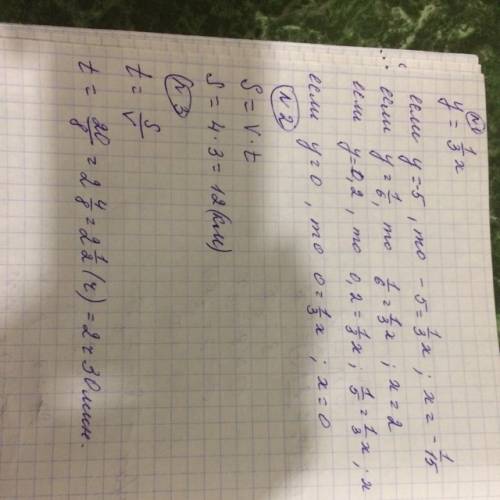 №1
y = 1/3 x
если y = -5, то -5 = 1/3 x; x = -1/15
если y = 1/6, то 1/6 = 1/3 x; x = 2
если y = 0,2, то 0,2 = 1/3 x; 1/5 = 1/3 x; x
если y = 0, то 0 = 1/3 x; x = 0
№2
S = v · t
S = 4 · 3 = 12 (км)
№3
t = S/v
t = 20/8 = 2 4/8 = 2 1/2 (ч) = 2ч 30 мин.